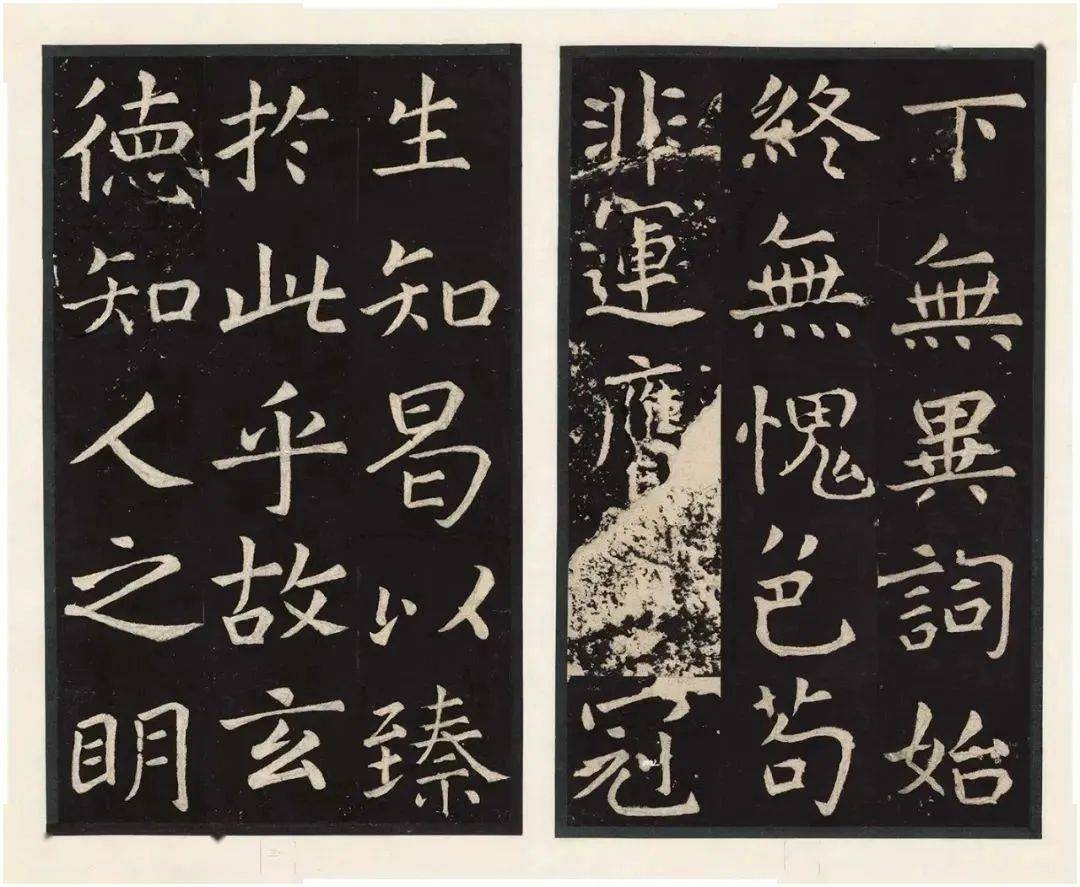 下無異詞始
終無愧色苟
非運膺冠
生知曷以臻
於此乎故玄
德知人之眀